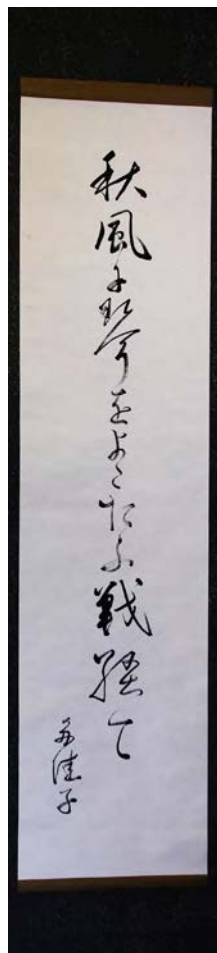 秋風に琴をよこたふ戦経て
多佳子